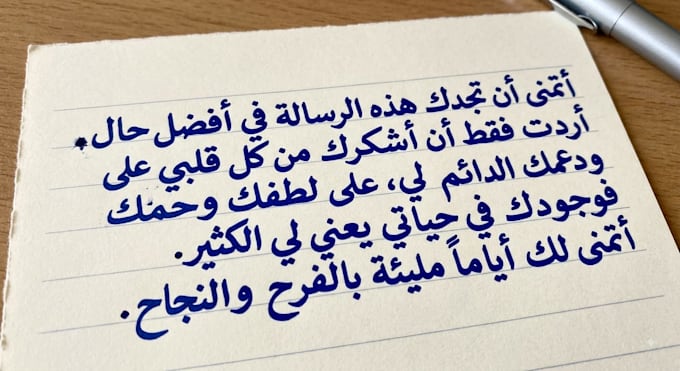 أتمنى أن تجدك هذه الرسالة في أفضل حال.
أردت فقط أن أشكرك من كل قلبي على
ودعمك الدائم لي، على لطفك وحمّك
فوجودك في حياتي يعني لي الكثير.
أتمنى لك أياماً مليئة بالفرح والنجاح.